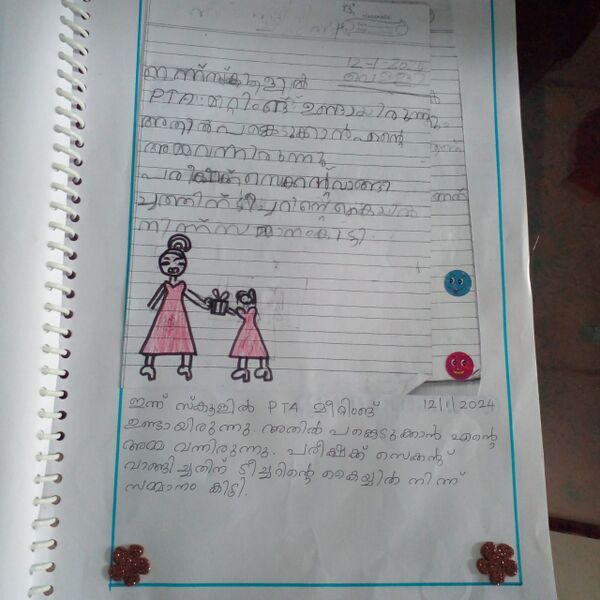 12-1-2024
ഇന്ന് സ്കൂളിൽ വെള്ളി
PTA മീറ്റിംങ്ങ് ഉണ്ടായിരുന്നു
അതിൽ പങ്കെടുക്കാൻ എന്റെ
അമ്മ വന്നിരുന്നു
പരീക്ഷക്ക് സെക്കന്റ് വാങ്ങി
ടീച്ചറിന്റെ കൈയിൽ
നിന്ന് സമ്മാനം കിട്ടി.
ഇന്ന് സ്കൂളിൽ PTA മീറ്റിംങ്ങ് 12/1/2024
ഉണ്ടായിരുന്നു. അതിൽ പങ്കെടുക്കാൻ എന്റെ
അമ്മ വന്നിരുന്നു. പരീക്ഷക്ക് സെകന്റ്
വാങ്ങിച്ചതിന് ടീച്ചറിന്റെ കൈയ്യിൽ നിന്ന്
സമ്മാനം കിട്ടി.